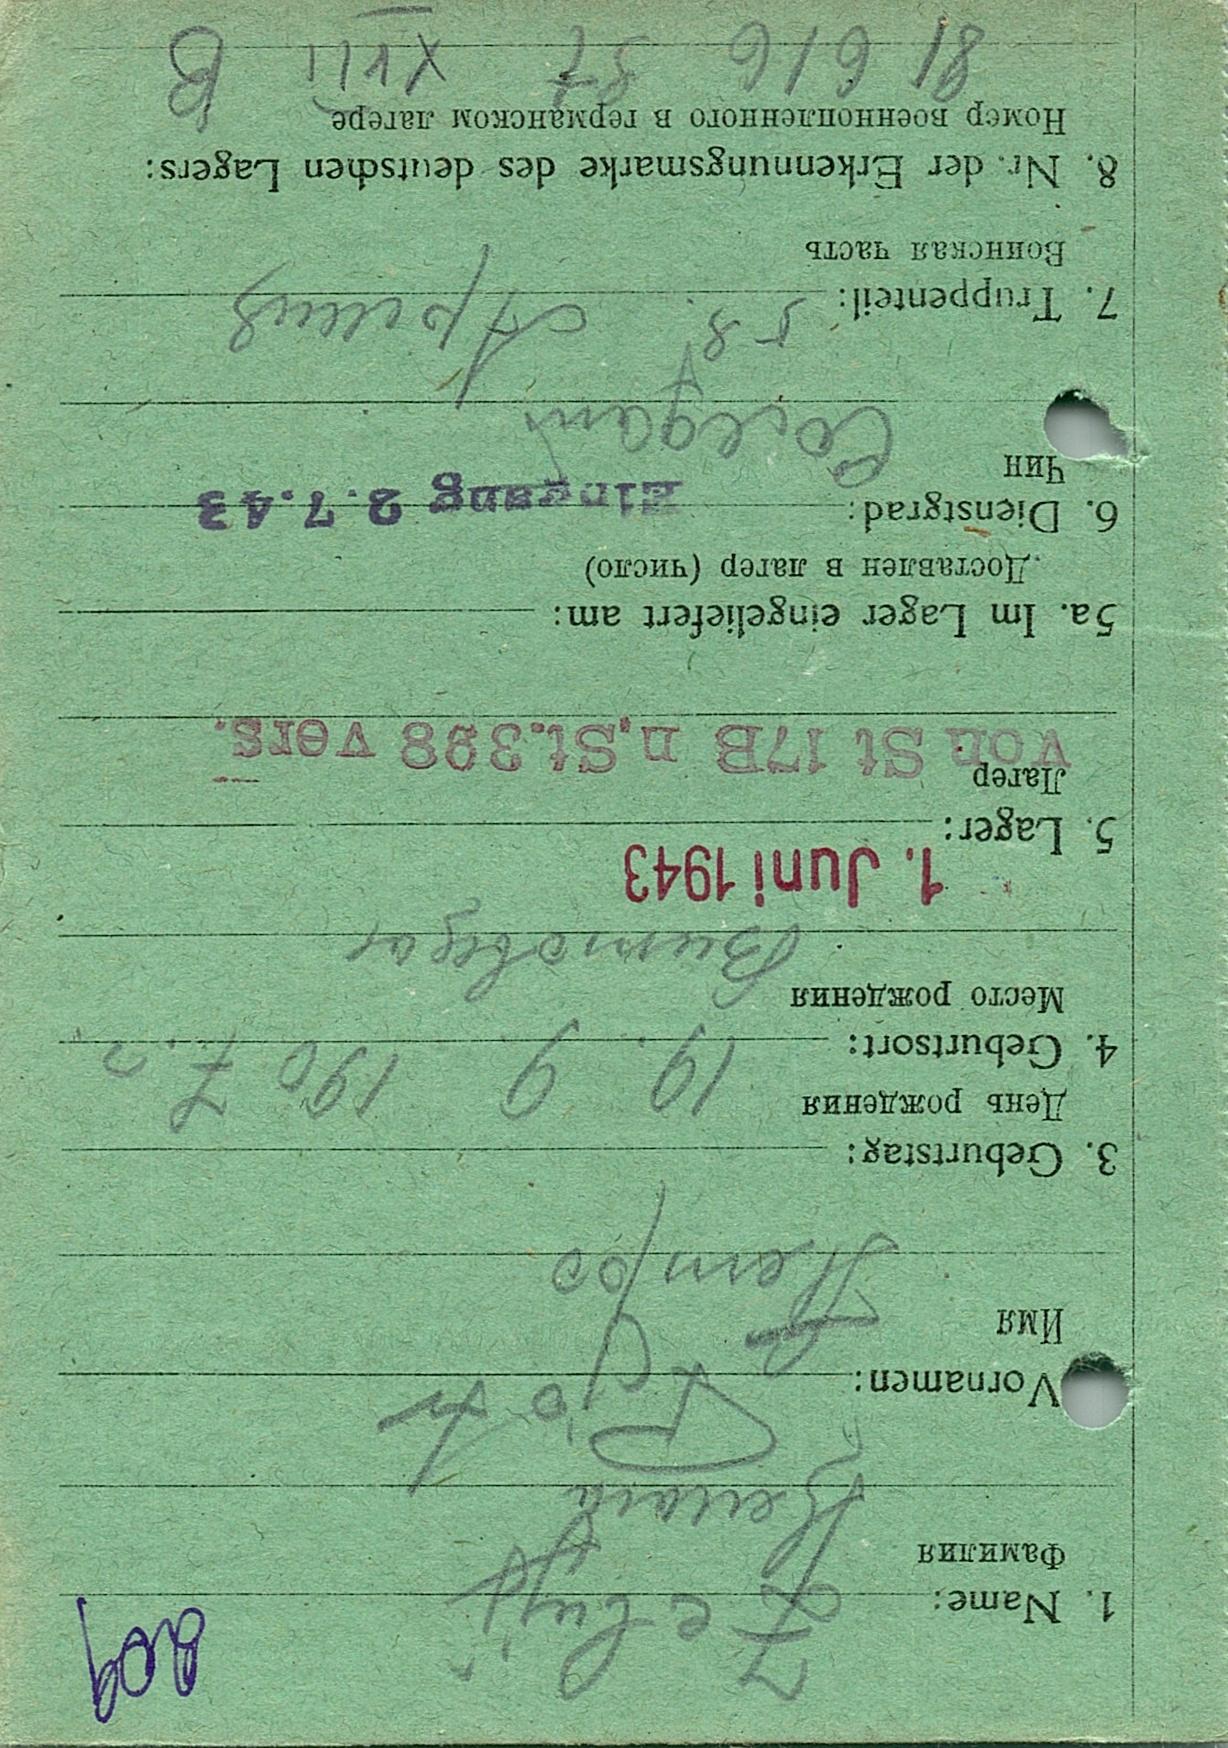 809
1. Name:
Фамилия
Vornamen:
Имя
Петро
3. Geburtstag:
День рождения
19. 9 1907.г
4. Geburtsort:
Место рождения
1. Juni 1943
5. Lager:
Лагер
von St 17B n.St.398 vers.
5a. Im Lager eingeliefert am:
Доставлен в лагер (число)
Eingang 2.7.43
6. Dienstgrad:
Чин
Солдат
7. Truppenteil: 58
Воинская часть
8. Nr. der Erkennungsmarke des deutschen Lagers:
Номер военнопленного в германском лагере
81616 XVII B